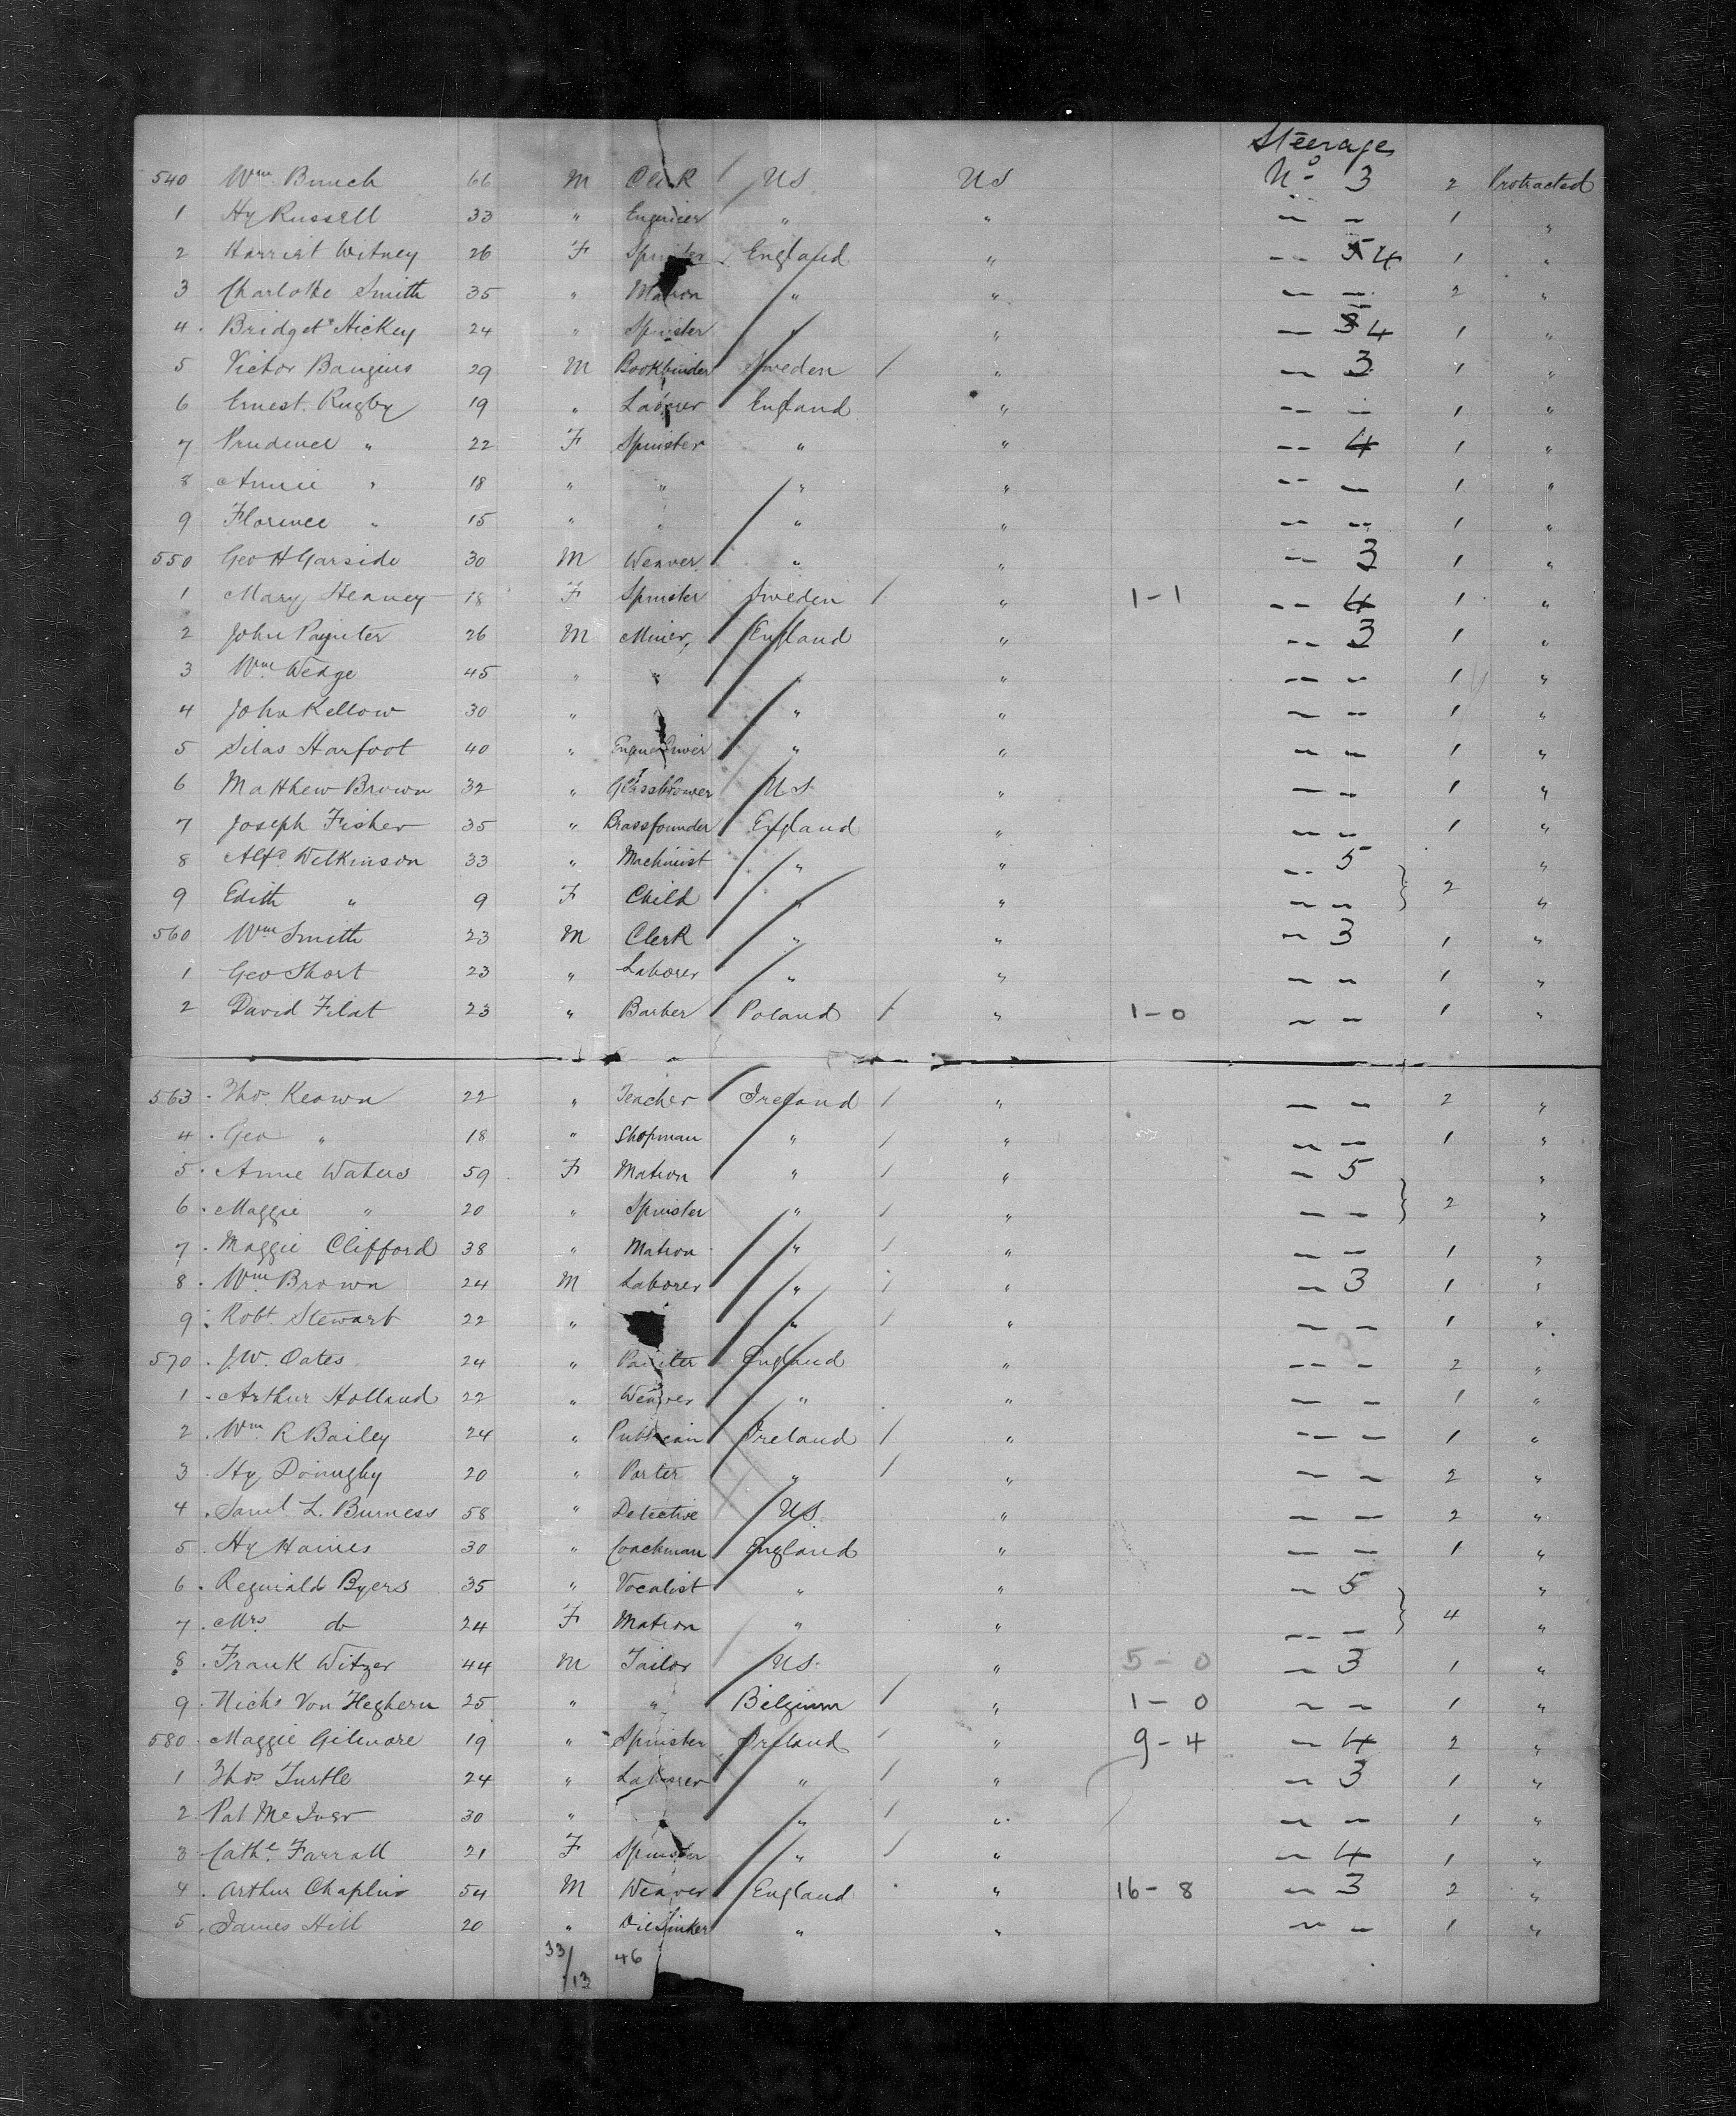 Steerage
540 Wm. Bunch 66 M Clerk US US No 3 2 Protracted
1 Hy Russell 33 " Engineer " " — — 1 "
2 Harriet Witney 26 F Spinster England " — — 4 1 "
3 Charlotte Smith 35 " Matron " " — — 2 "
4 Bridget Hickey 24 " Spinster " " — 4 1 "
5 Victor 29 M Bookbinder Sweden / " — 3 1 "
6 Ernest Rugby 19 " Laborer England " — — 1 "
7 Prudence " 22 F Spinster " " — 4 1 "
8 Annie " 18 " " " " — — 1 "
9 Florence " 15 " " " " — — 1 "
550 Geo H Garside 30 M Weaver " " — 3 1 "
1 Mary Heaney 18 F Spinster Sweden / " 1-1 — 4 1 "
2 John Paynter 26 M Miner England " — 3 1 "
3 Wm Wedge 45 " " " " — — 1 "
4 John Kellow 30 " " " — — 1 "
5 Silas Harfoot 40 " " " — — 1 "
6 Matthew Brown 32 " Glassblower US " — — 1 "
7 Joseph Fisher 35 " Brassfounder England " — — 1 "
8 Alfd Wilkinson 33 " Machinist " " — 5 "
9 Edith " 9 F Child " " — — } 2 "
560 Wm Smith 23 M Clerk " " — 3 1 "
1 Geo Short 23 " Laborer " " — — 1 "
2 David Filat 23 " Barber Poland / " 1-0 — — 1 "
563 Thos. Keown 22 " Teacher Ireland / " — — 2 "
4 Geo " 18 " Shopman " / " — — 1 "
5 Anne Waters 59 F Matron " / " — 5 "
6 Maggie " 20 " Spinster " / " — — } 2 "
7 Maggie Clifford 38 " Matron " / " — — 1 "
8 Wm Brown 24 M Laborer " / " — 3 1 "
9 Robt Stewart 22 " " / " — — 1 "
570 J.W. Oates 24 " Painter England " — — 2 "
1 Arthur Holland 22 " Weaver " " — — 1 "
2 Wm R Bailey 24 " Publican Ireland / " — — 1 "
3 Hy 20 " Porter " / " — — 2 "
4 Saml. L. Burness 58 " Detective US " — — 2 "
5 Hy Haines 30 " Coachman England " — — 1 "
6 Reginald Byers 35 " Vocalist " " — 5 "
7 Mrs do 24 F Matron " " — — } 4 "
8 Frank Witzer 44 M Tailor US " 5-0 — 3 1 "
9 Nichs Von Heghern 25 " " Belgium / " 1-0 — — 1 "
580 Maggie Gilmore 19 " Spinster Ireland / " 9-4 — 4 2 "
1 Thos Turtle 24 " Laborer " / " — 3 1 "
2 Pat McIver 30 " " / " — — 1 "
3 Cathe Farrall 21 F Spinster " / " — 4 1 "
4 Arthur Chaplin 54 M Weaver England " 16-8 — 3 2 "
5 James Hill 20 " Diesinker " " — — 1 "
33/13 46